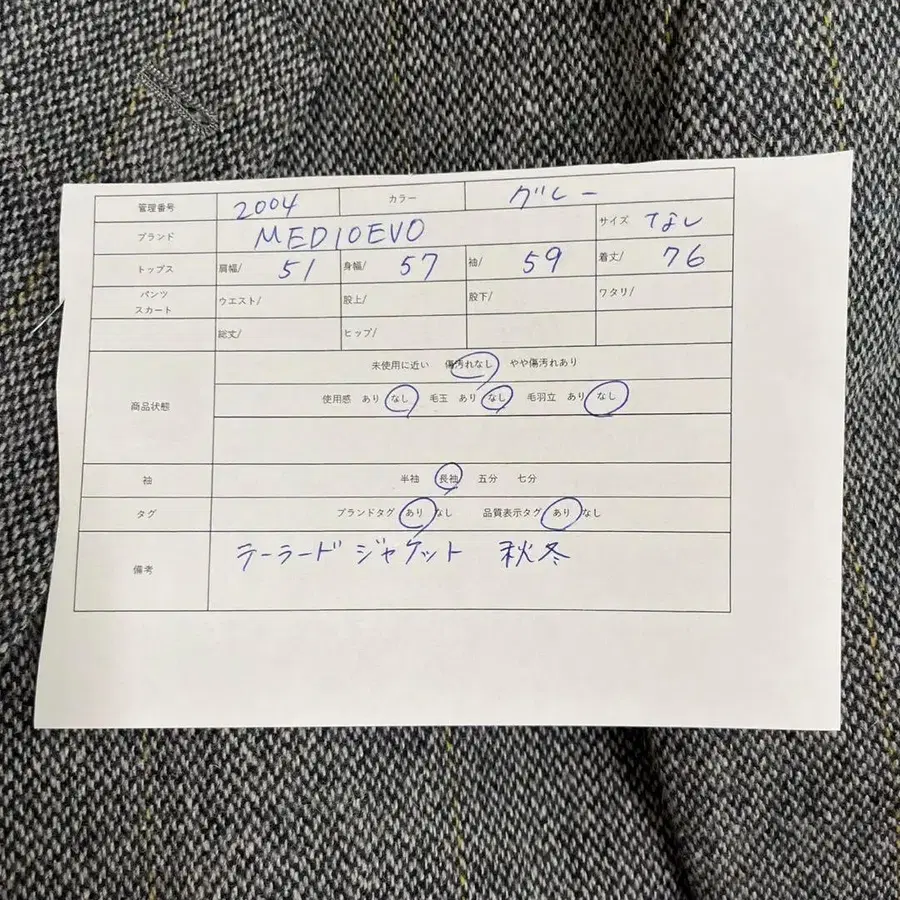 管理番号 2004 カラー グレー
ブランド MEDIOEVO サイズ なし
トップス 肩幅/ 51 身幅/ 57 袖/ 59 着丈/ 76
パンツ
スカート ウエスト/ 股上/ 股下/ ワタリ/
総丈/ ヒップ/
商品状態
未使用に近い 傷汚れなし やや傷汚れあり
使用感 あり なし 毛玉 あり なし 毛羽立 あり なし
袖 半袖 長袖 五分 七分
タグ ブランドタグ あり なし 品質表示タグ あり なし
備考 テーラードジャケット 秋冬